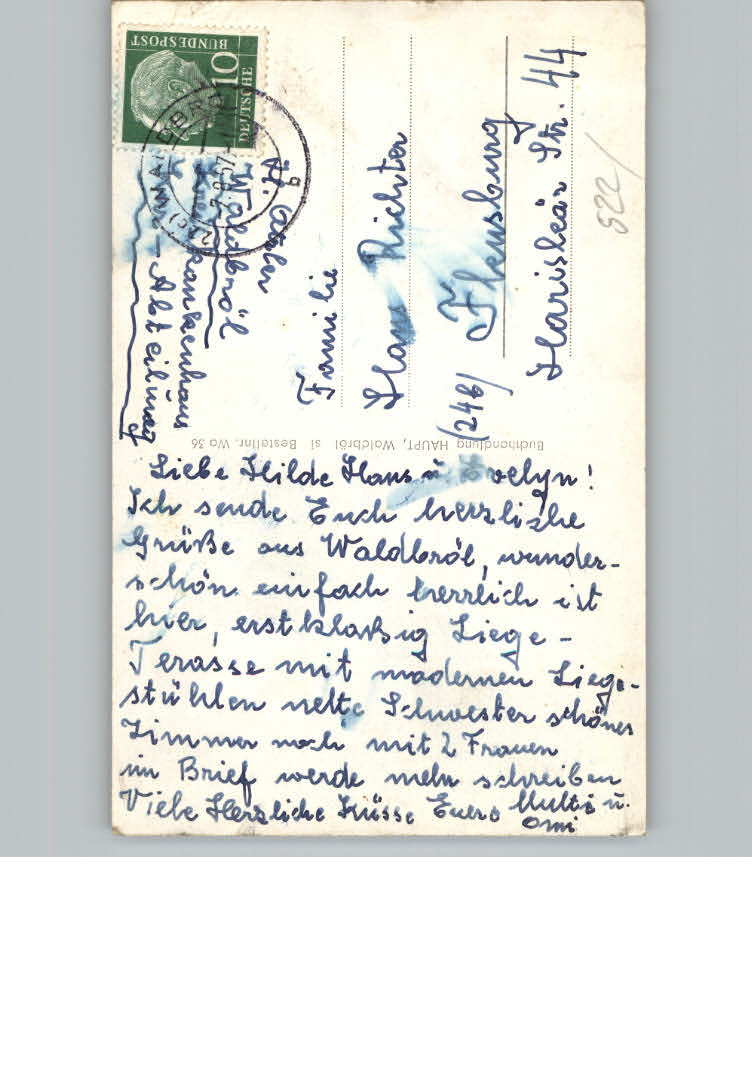 Liebe Hilde Hans u. Evelyn!
Ich sende Euch herzlizhe
Grüße aus Waldbröl, wunder-
schön einfach herrlich ist
hier, erstklaßig Liege-
Terasse mit modernen Liege-
stühlen nette Schwester schönes
Zimmer noch mit 2 Frauen
im Brief werde mehr schreiben
Viele Herzliche Küsse Euere Mutti u.
Omi
Waldbröl
Krankenhaus
Abteilung
Familie
Hans Richter
(24b) Flensburg
Harisleär Str. 44
522/
DEUTSCHE
BUNDESPOST
10
(22c) WALDBRÖL
b
Buchhandlung HAUPT, Waldbröl si Bestellnr. Wa 36